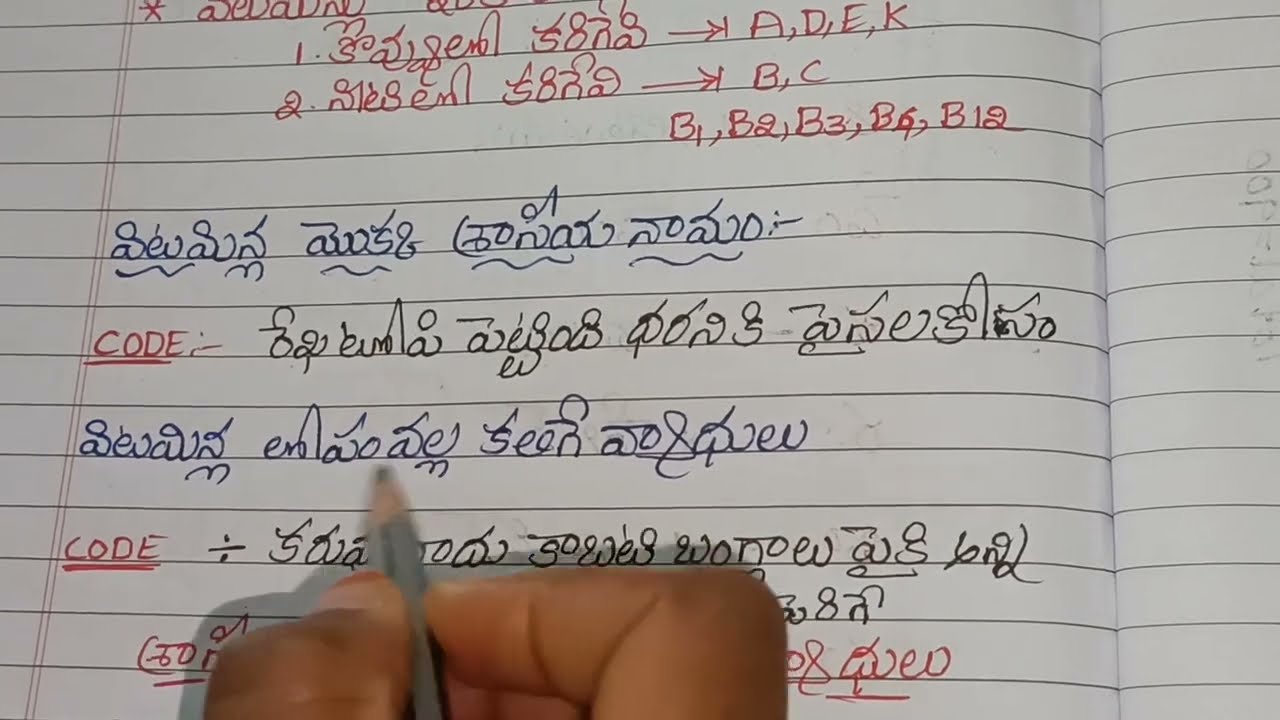 * విటమిన్లు
1. కొవ్వులలో కరిగేవి → A, D, E, K
2. నీటిలో కరిగేవి → B, C
B1, B2, B3, B6, B12
విటమిన్ల మొక్క శాస్త్రీయ నామం:-
CODE:- రేఖ టోపి పెట్టింది ధరనికి పైసలకోసం
విటమిన్ల లోపం వల్ల కలిగే వ్యాధులు
CODE ÷ కాబట్టి బంగ్లాలు పైకి అన్ని
పెరిగె
వ్యాధులు